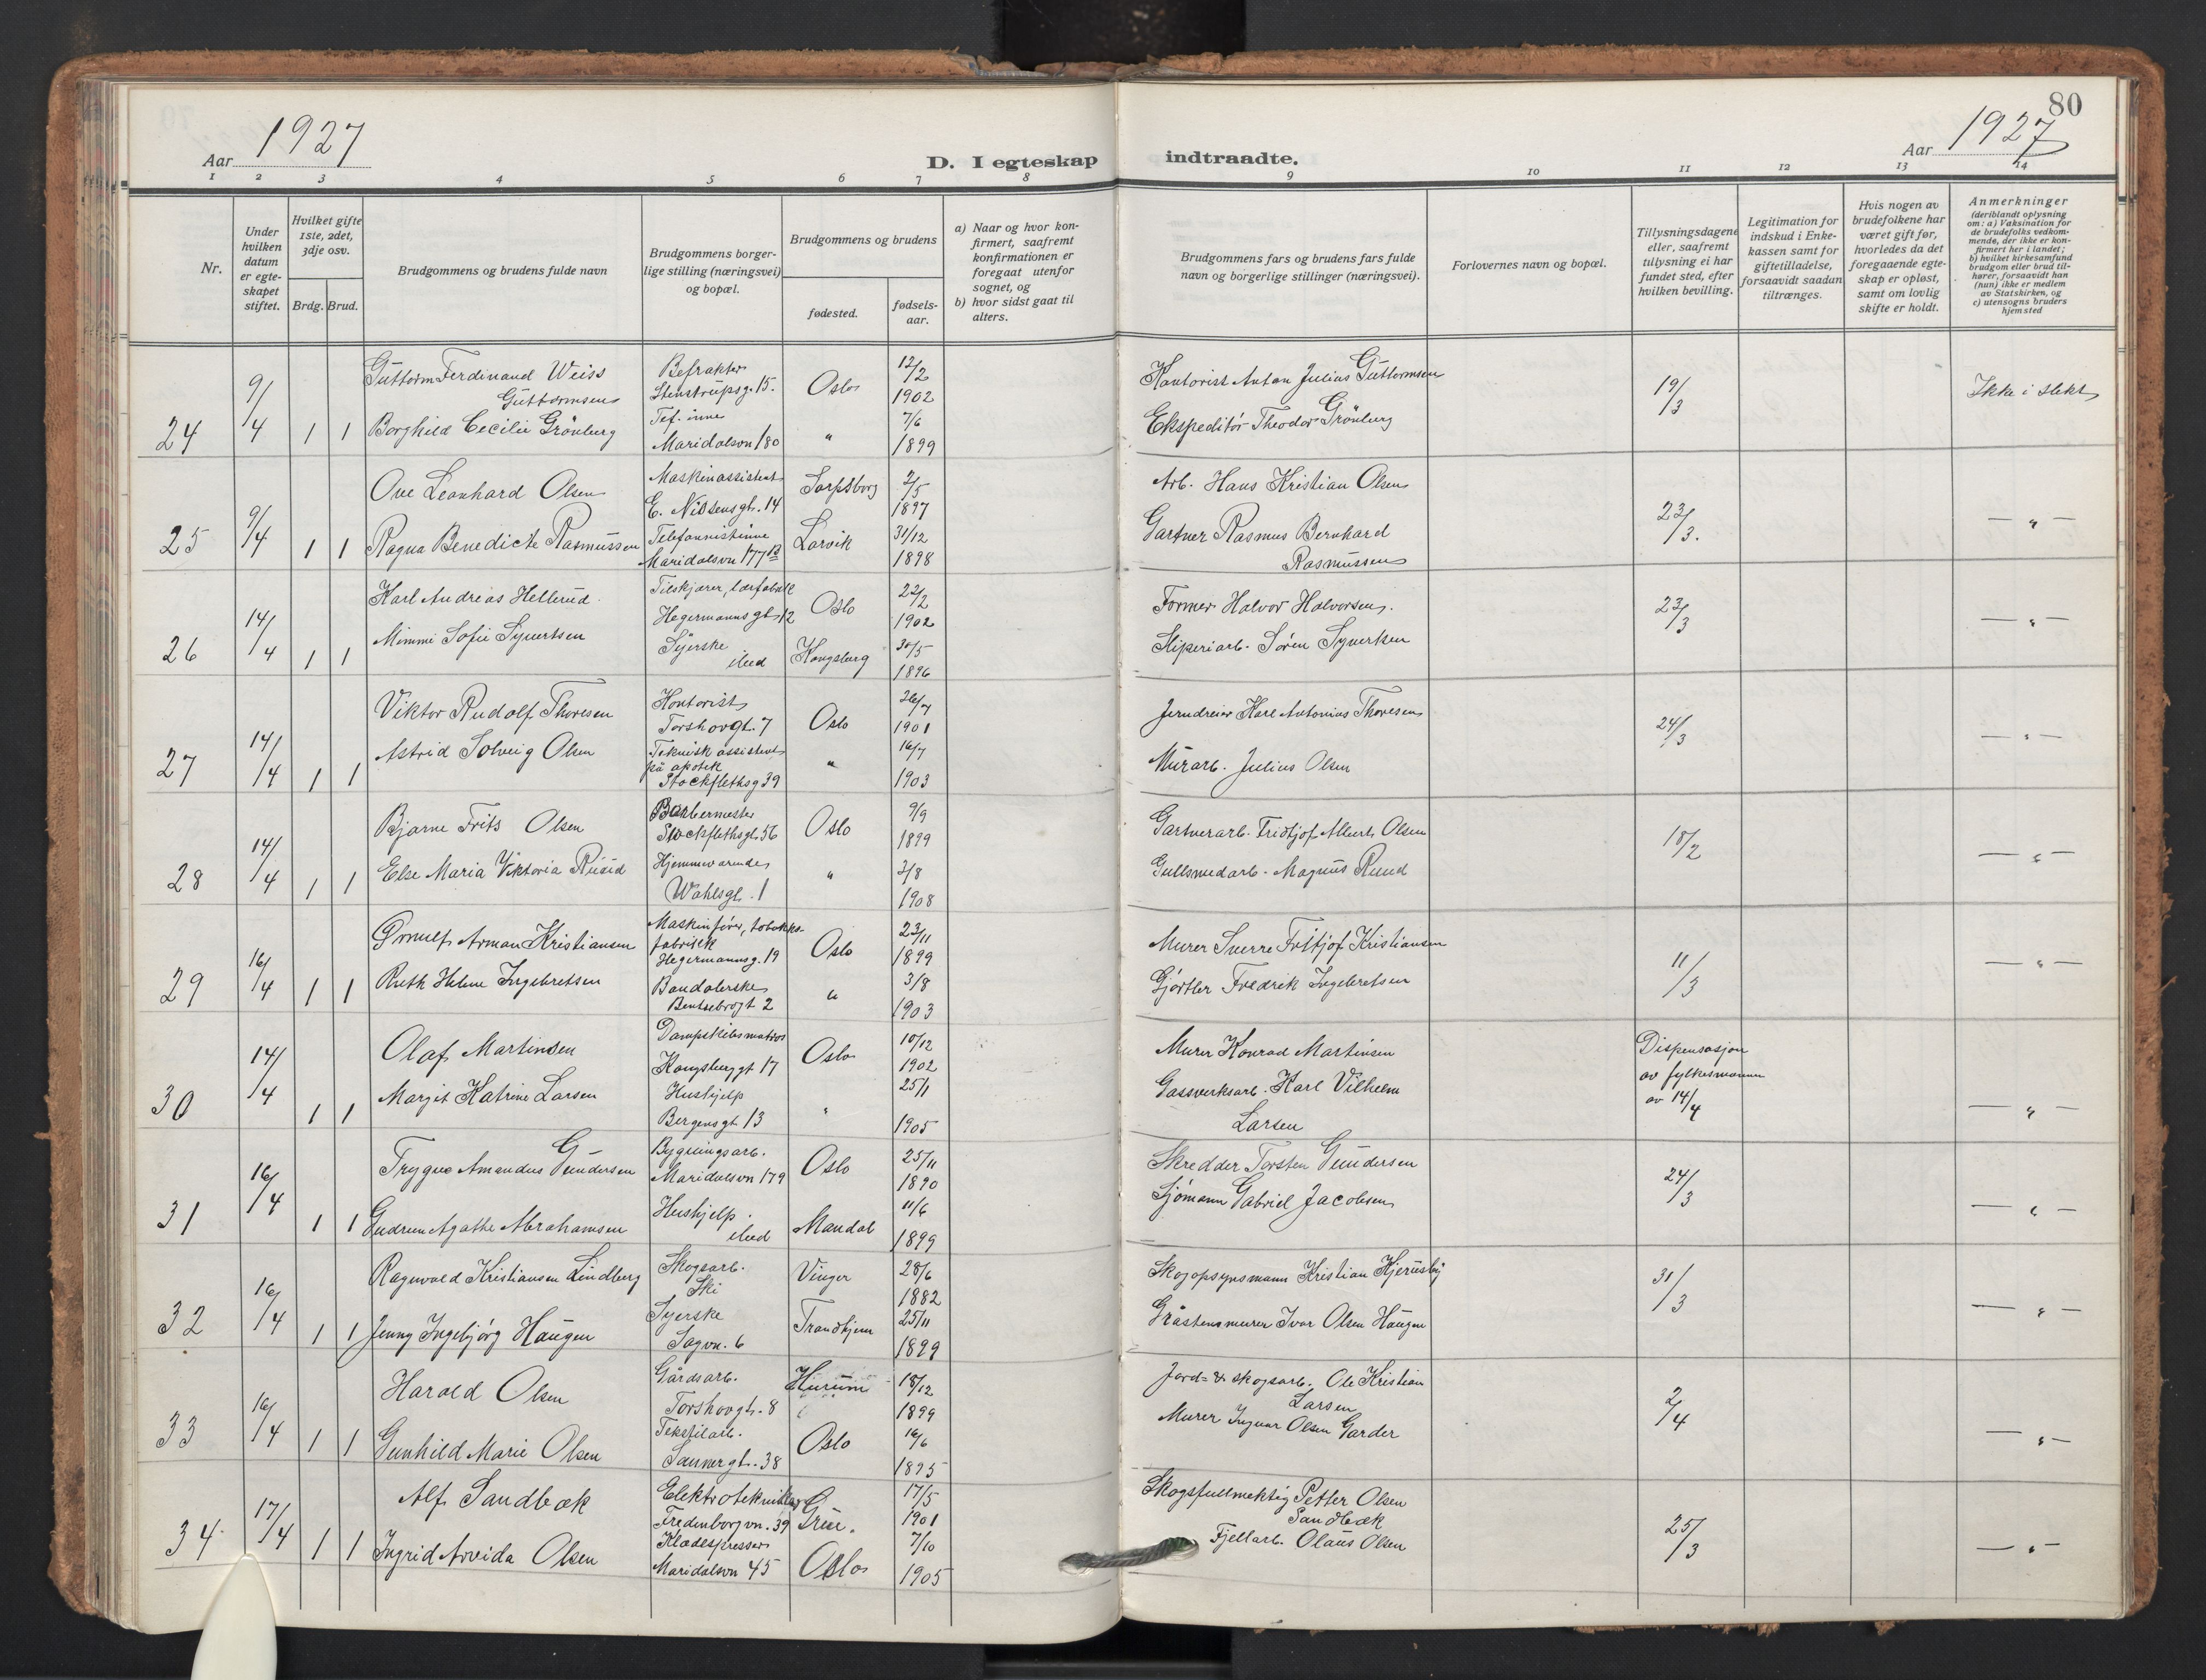 80
Aar 1927
D. I egteskap indtraadte.
Aar 1927
1 2 3 4 5 6 7 8 9 10 11 12 13 14
Nr.
Under hvilken datum er egteskapet stiftet.
Hvilket gifte 1ste, 2det, 3dje osv.
Brdg. Brud.
Brudgommens og brudens fulde navn
Brudgommens borgerlige stilling (næringsvei) og bopæl.
Brudgommens og brudens
fødested.
fødselsaar.
a) Naar og hvor konfirmert, saafremt konfirmationen er foregaat utenfor sognet, og
b) hvor sidst gaat til alters.
Brudgommens fars og brudens fars fulde navn og borgerlige stillinger (næringsvei).
Forlovernes navn og bopæl.
Tillysningsdagene eller, saafremt tillysning ei har fundet sted, efter hvilken bevilling.
Legitimation for indskud i Enkekassen samt for giftetilladelse, forsaavidt saadan tiltrænges.
Hvis nogen av brudefolkene har været gift før, hvorledes da det foregaaende egteskap er opløst, samt om lovlig skifte er holdt.
Anmerkninger (deriblandt oplysning om: a) Vaksination for de brudefolks vedkommende, der ikke er konfirmert her i landet; b) hvilket kirkesamfund brudgom eller brud tilhører, forsaavidt han (hun) ikke er medlem av Statskirken, og c) utensogns bruders hjemsted
24 9/4 1 1 Guttorm Ferdinand Weiss Guttormsen Befrakter Stenstrupsg. 15. Oslo 12/2 1902 Kontorist Anton Julius Guttormsen 19/3 Ikke i slekt
Borghild Cecilie Grönberg Tef. inne Maridalsvn 180 " 7/6 1899 Ekspeditör Theodor Grönberg
25 9/4 1 1 Ove Leonhard Olsen Maskinassistent E. Nilsensgt. 14 Sarpsborg 2/5 1897 Arb. Hans Kristian Olsen 23/3. — " —
Ragna Benedicte Rasmussen Telefonnistinne Maridalsvn 177 B Larvik 31/12 1898 Gartner Rasmus Bernhard Rasmussen
26 14/4 1 1 Karl Andreas Hellerud Tilskjærer, lærfabrik Hegermannsgt. 12 Oslo 22/2 1902 Former Halvor Halvorsen. 23/3 — " —
Mimmi Sofie Syvertsen Syerske ibed Kongsberg 30/5 1896 Sliperiarb. Sören Syvertsen
27 14/4 1 1 Viktor Rudolf Thoresen Kontorist Torshovgt. 7 Oslo 26/7 1901 Jerndreier Karl Antonius Thoresen 24/3 — " —
Astrid Solveig Olsen Teknisk assistent på apotek Stockflethsg 39 " 16/7 1903 Murarb. Julius Olsen
28 14/4 1 1 Bjarne Frits Olsen Barbermester Stockflethsgt 56 Oslo 9/9 1899 Gartnerarb. Fridtjof Albert Olsen 18/2 — " —
Else Maria Viktoria Ruud Hjemmeværende Wahlsgt. 1 " 3/8 1908 Gullsmedarb. Magnus Ruud
29 16/4 1 1 Ørnulf Arman Kristiansen Maskinfører, tobakksfabrikk Hegermannsg. 19 Oslo 23/11 1899 Murer Sverre Fritjof Kristiansen 11/3 — " —
Ruth Helene Ingebretsen Bandolerske Bentsebrogt 2 " 3/8 1903 Gjørtler Fredrik Ingebretsen
30 14/4 1 1 Olaf Martinsen Dampskibsmatros Kongsberggt 17 Oslo 10/12 1902 Murer Konrad Martinsen Dispensasjon av fylkesmannen av 14/4 — " —
Margit Katrine Larsen Hushjelp Bergensgt 13 " 25/1 1905 Gassverksarb. Karl Vilhelm Larsen
31 16/4 1 1 Trygve Amandus Gundersen Bygningsarb. Maridalsvn 179 Oslo 25/11 1890 Skredder Torsten Gundersen 24/3 — " —
Gudrun Agathe Abrahamsen Hushjelp. ibed Mandal 11/6 1899 Sjömann Gabriel Jacobsen
32 16/4 1 1 Ragnvald Kristiansen Lindberg Skogsarb. Ski Vinger 28/6 1882 Skogopsynsmann Kristian Hjernsby 31/3 — " —
Jenny Ingebjörg Haugen Syerske Sagvn. 6 Trondhjem 25/11 1899 Gråstensmurer Ivar Olsen Haugen
33 16/4 1 1 Harald Olsen Gårdsarb. Torshovgt. 8 Hurum 18/12 1899 Jord- & skogsarb. Ole Kristian Larsen 2/4 — " —
Gunhild Marie Olsen Tekstilarb. Sannergt. 38 Oslo 16/6 1895 Murer Ingvar Olsen Garder
34 17/4 1 1 Alf Sandbæk Elektrotekniker Fredensborgvn. 39 Grue. 17/5 1901 Skogsfullmektig Petter Olsen Sandbæk 25/3 — " —
Ingrid Arvida Olsen Klædespresser Maridalsvn 45 Oslo 7/10 1905 Fjellarb. Olaus Olsen